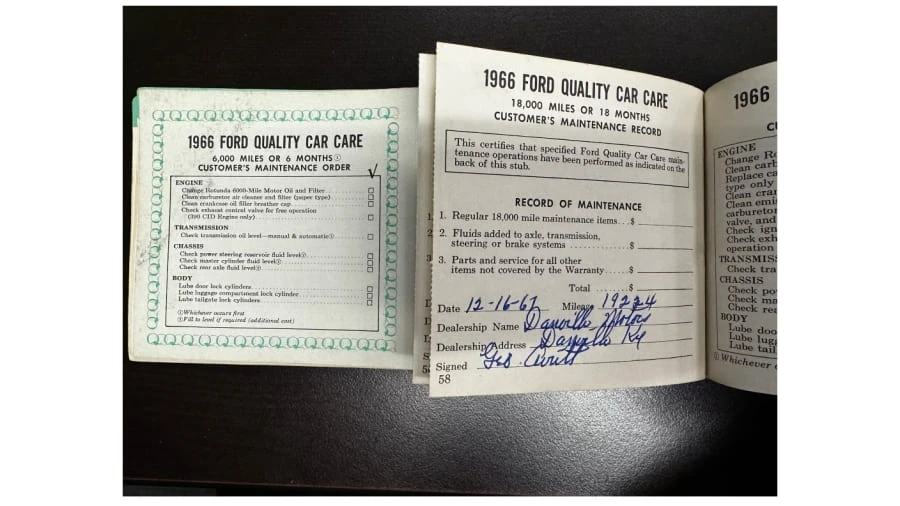 1966 FORD QUALITY CAR CARE
6,000 MILES OR 6 MONTHS①
CUSTOMER'S MAINTENANCE ORDER
ENGINE
Change Rotunda 6000-Mile Motor Oil and Filter
Clean carburetor air cleaner and filter (paper type)
Clean crankcase oil filler breather cap
Check exhaust control valve for free operation
(390 CID Engine only)
TRANSMISSION
Check transmission oil level—manual & automatic②
CHASSIS
Check power steering reservoir fluid level②
Check master cylinder fluid level②
Check rear axle fluid level②
BODY
Lube door lock cylinders
Lube luggage compartment lock cylinder
Lube tailgate lock cylinders
①Whichever occurs first
②Fill to level if required (additional cost)
1966 FORD QUALITY CAR CARE
18,000 MILES OR 18 MONTHS
CUSTOMER'S MAINTENANCE RECORD
This certifies that specified Ford Quality Car Care main-
tenance operations have been performed as indicated on the
back of this stub.
RECORD OF MAINTENANCE
1. Regular 18,000 mile maintenance items...$
2. Fluids added to axle, transmission,
steering or brake systems ............$
3. Parts and service for all other
items not covered by the Warranty......$
Total .......$
Date 12-16-67 Mileage 19224
Dealership Name Danville Motors
Dealership Address Danville Ky
Signed Geo.
58
1966
ENGINE
Change
Clean
Replace
type only
Clean
Clean
carburetor
valve, and
Check
Check
operation
Check
CHASSIS
Check
Check
Check
BODY
Lube
Lube
Lube
① Whichever